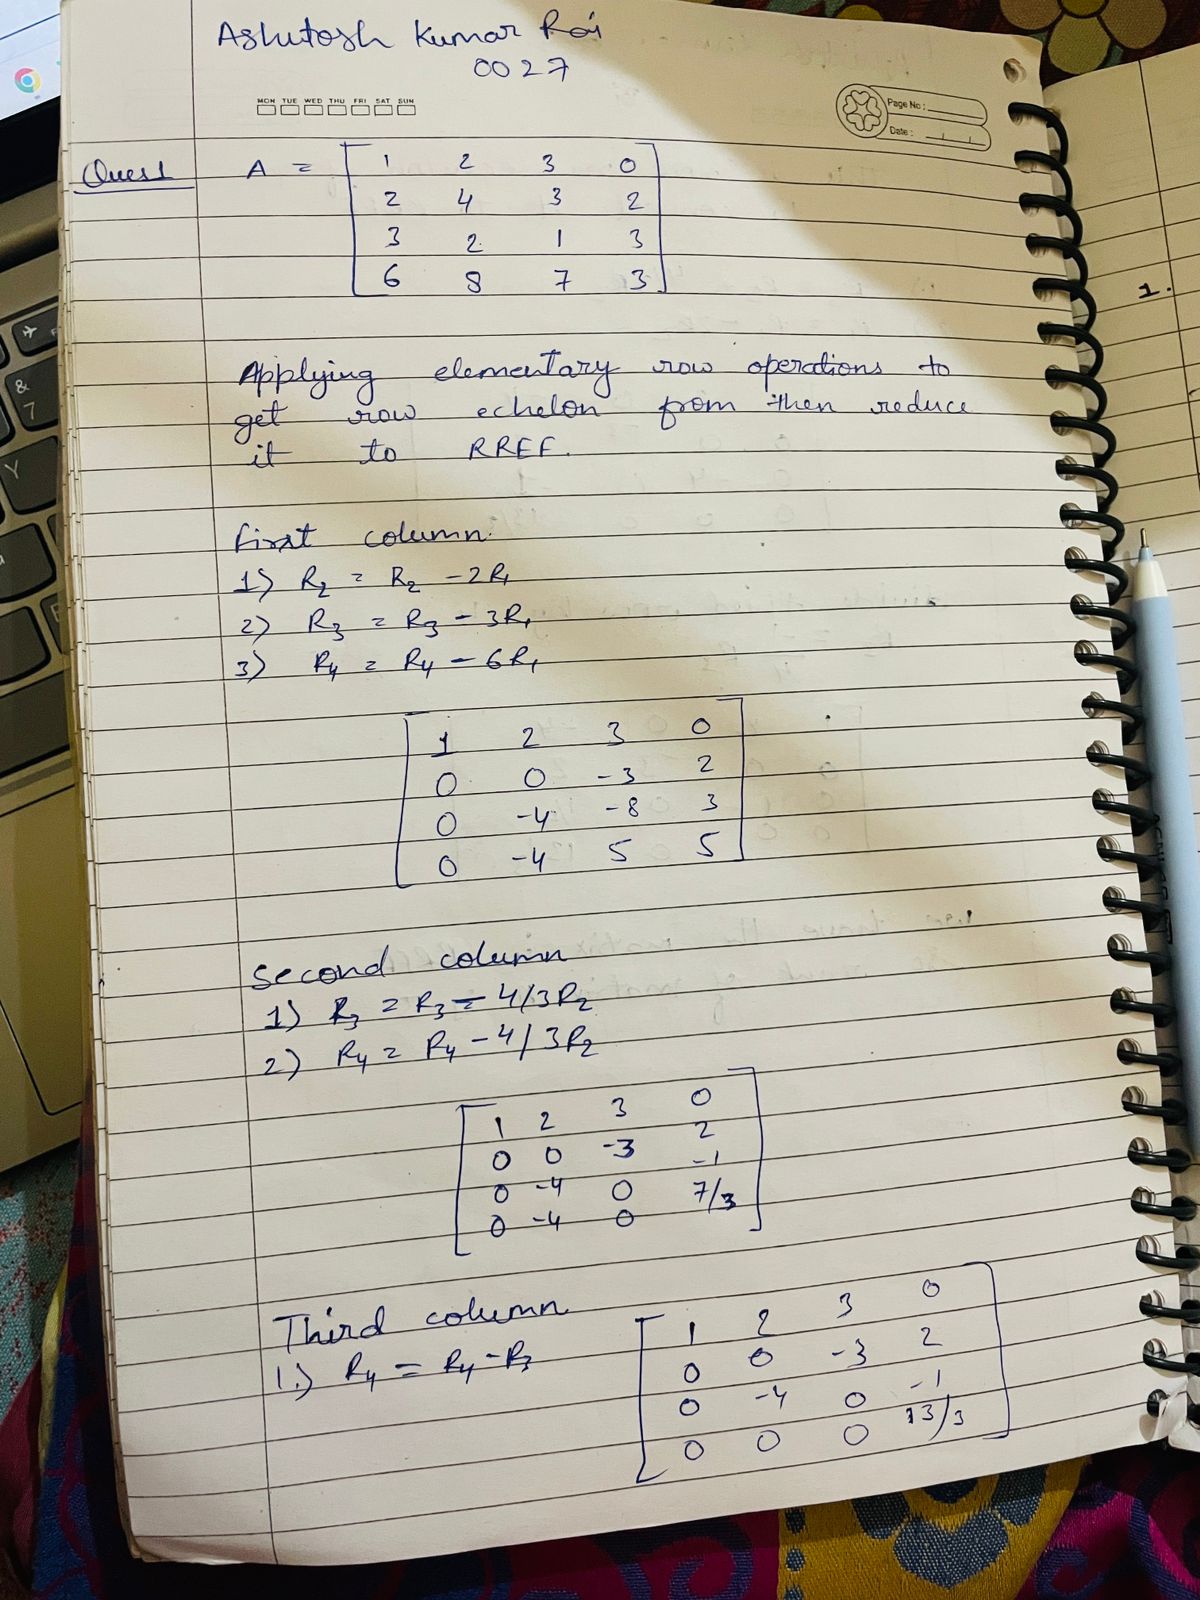 Ashutosh Kumar Rai
0027
MON TUE WED THU FRI SAT SUN
Page No:
Date:
Ques1 A = 1 2 3 0
2 4 3 2
3 2 1 3
6 8 7 3
1.
Applying elementary row operations to
get row echelon from then reduce
it to RREF.
first column:
1) R2 = R2 - 2R1
2) R3 = R3 - 3R1
3) R4 = R4 - 6R1
1 2 3 0
0 0 -3 2
0 -4 -8 3
0 -4 5 5
second column
1) R3 = R3 = - 4/3R2
2) R4 = R4 - 4/3R2
1 2 3 0
0 0 -3 2
0 -4 0 -1
0 -4 0 7/3
Third column
1.) R4 = R4 - R3
1 2 3 0
0 0 -3 2
0 -4 0 -1
0 0 0 13/3